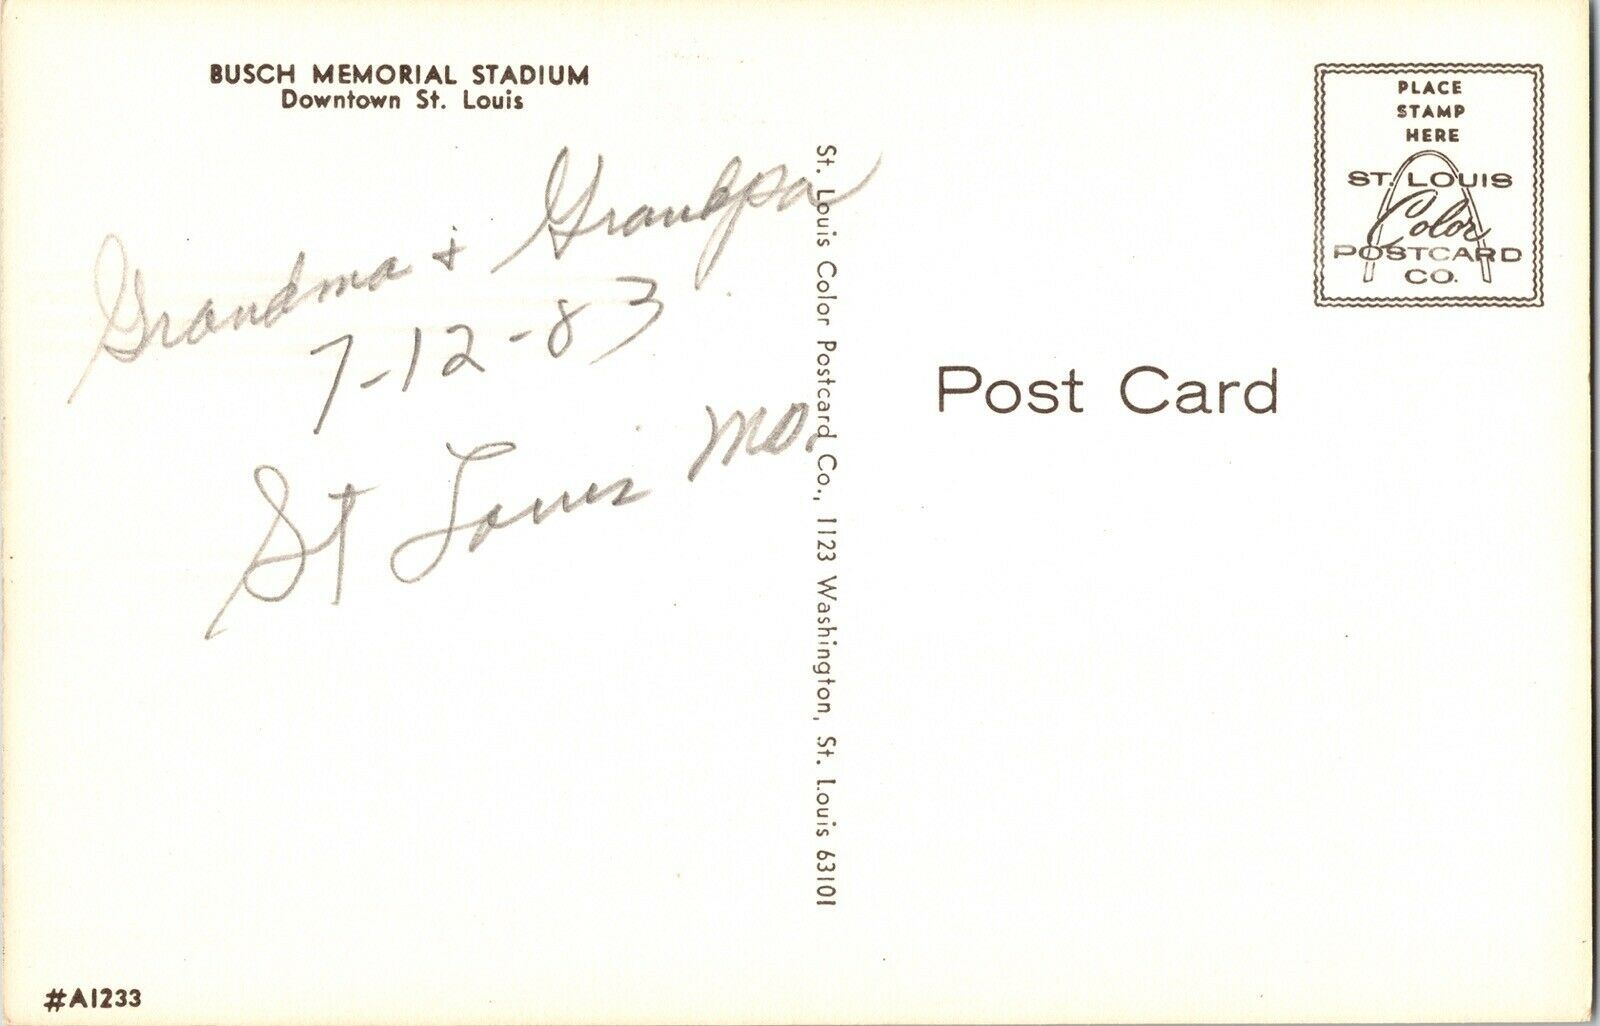 BUSCH MEMORIAL STADIUM
Downtown St. Louis
Grandma + Grandpa
7-12-83
St Louis Mo.
#A1233
St. Louis Color Postcard Co., 1123 Washington, St. Louis 63101
PLACE
STAMP
HERE
ST. LOUIS
Color
POSTCARD
CO.
Post Card